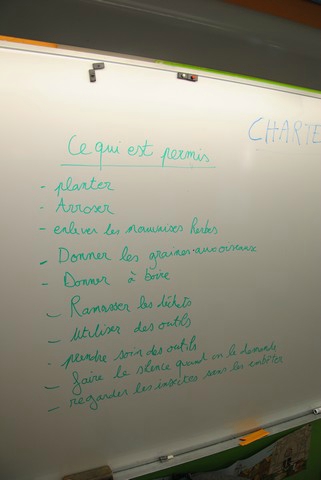 CHARTE
Ce qui est permis
- planter
- Arroser
- enlever les mauvaises herbes
- Donner les graines aux oiseaux
- Donner à boire
- Ramasser les déchets
- Utiliser des outils
- prendre soin des outils
- faire le silence quand on le demande
- regarder les insectes sans les embêter